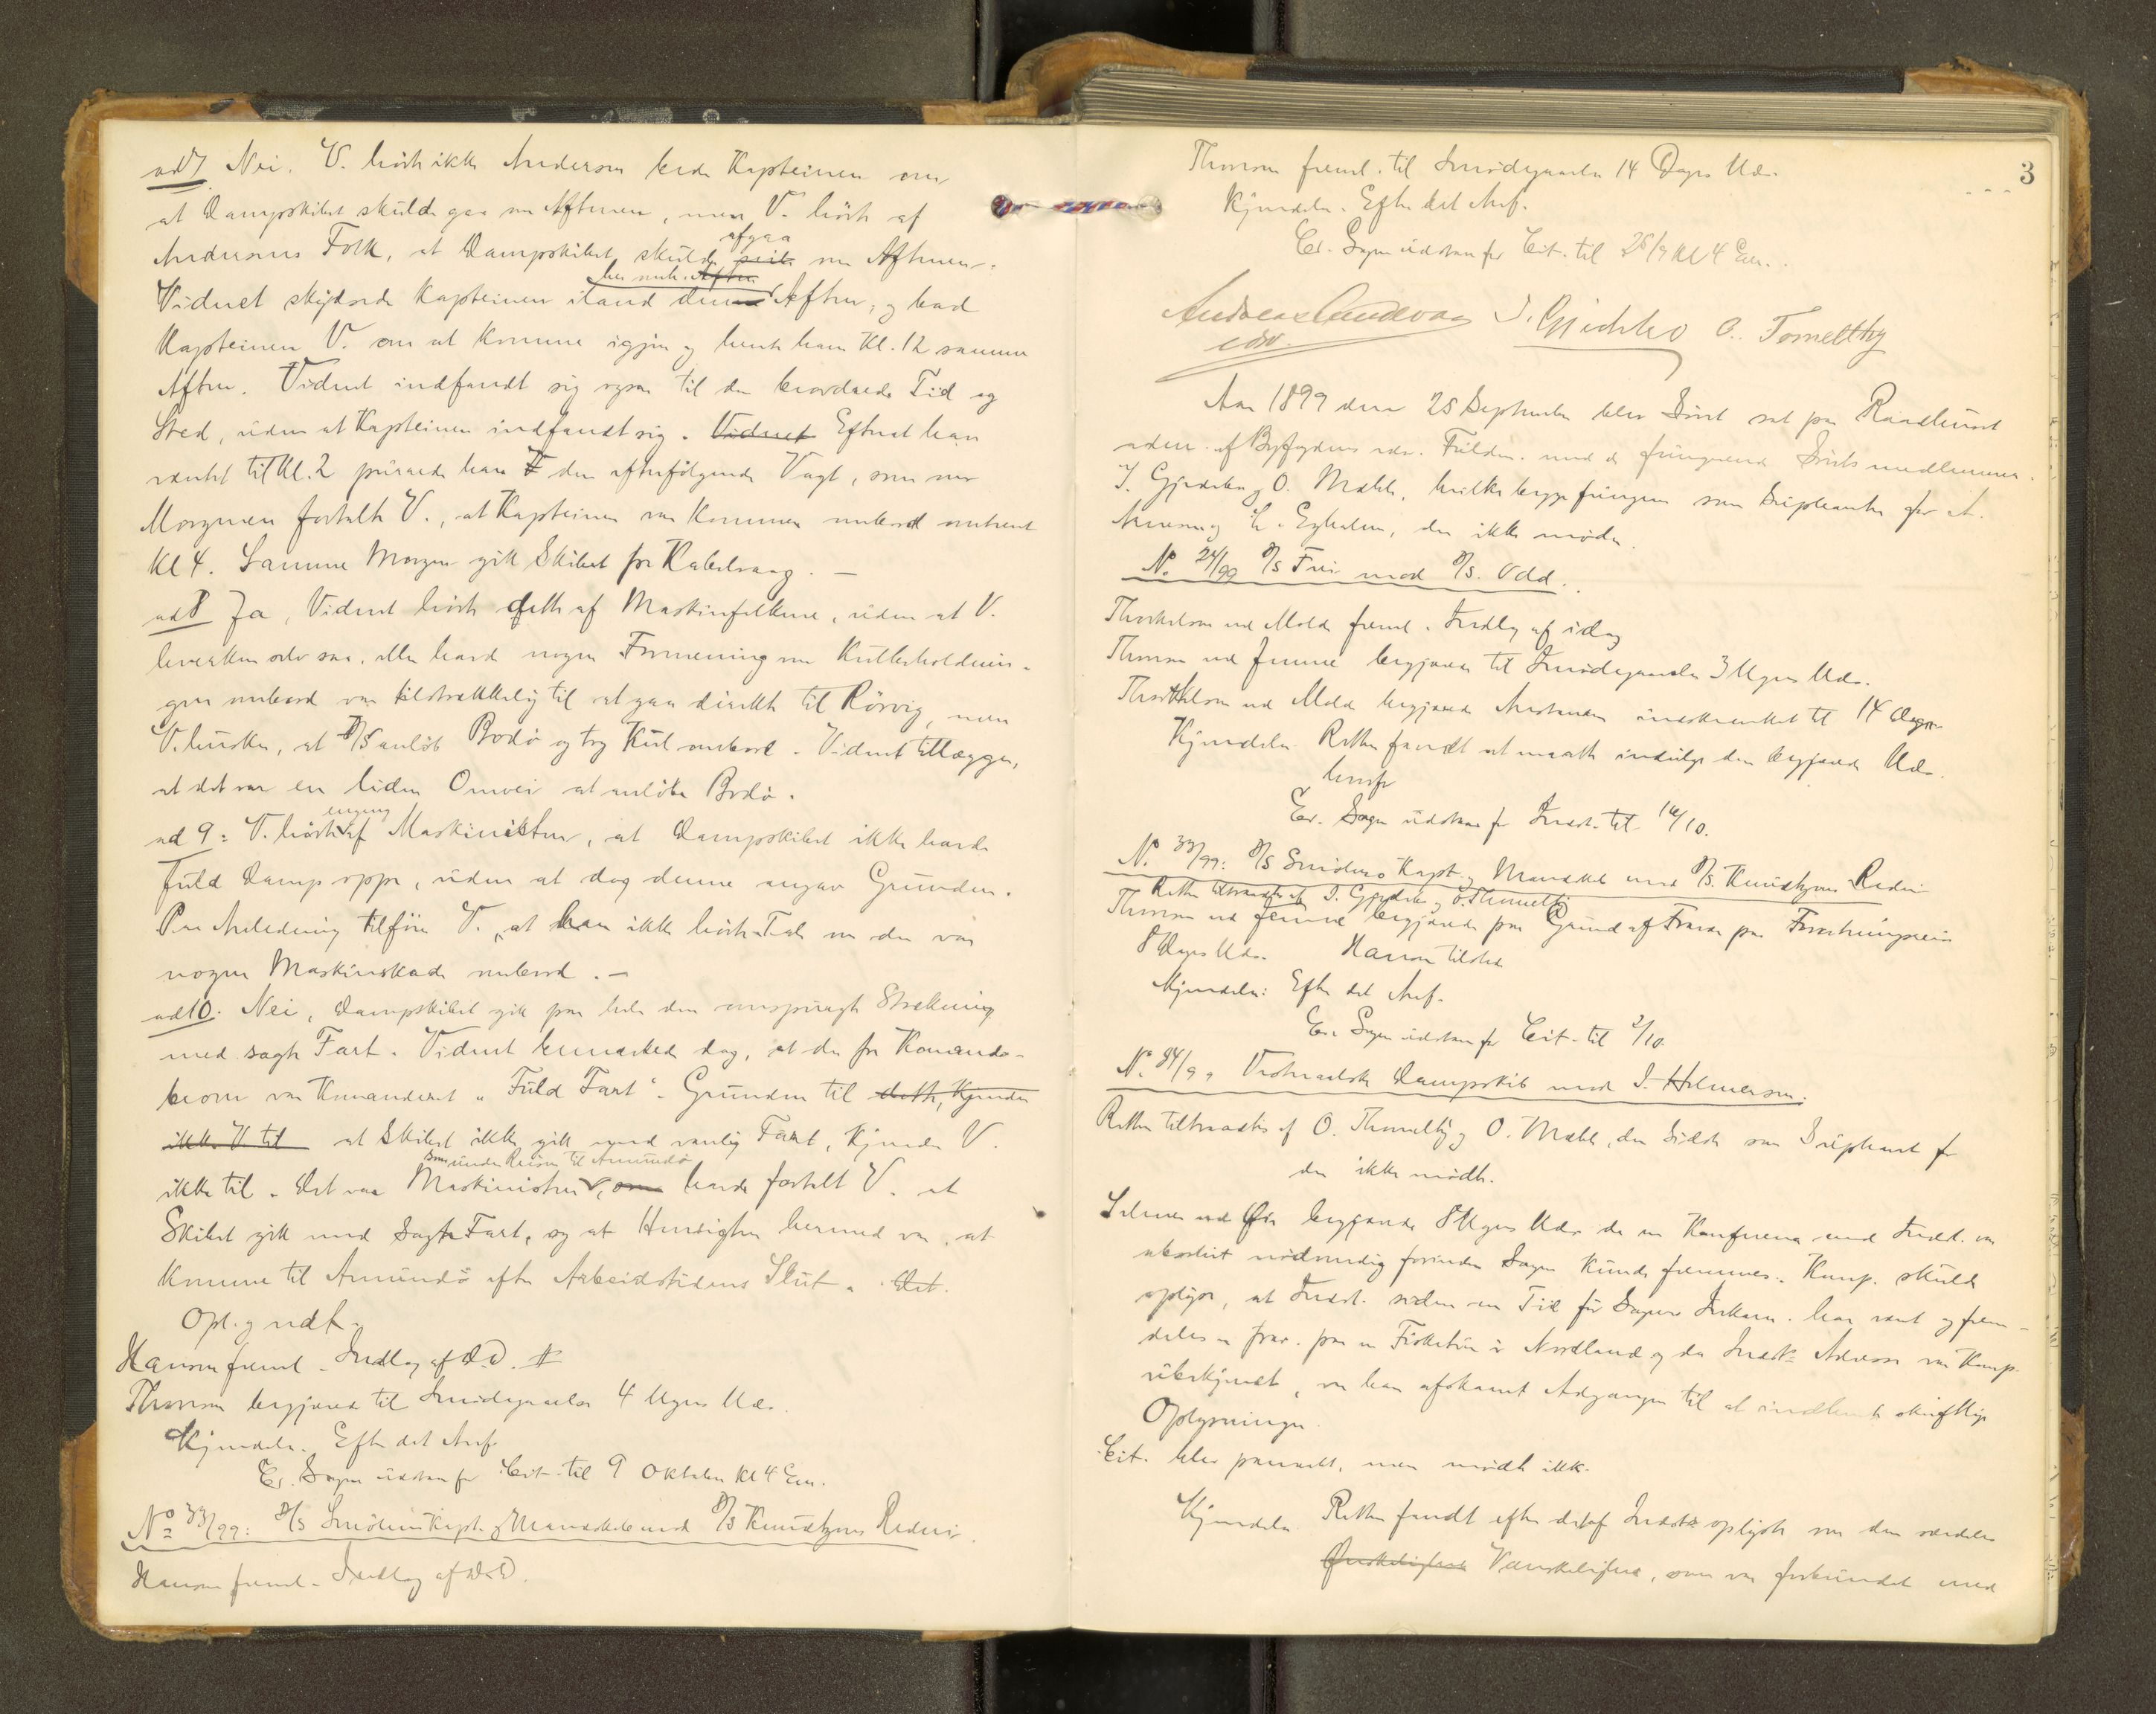 ad 7 Nei. V. hörte ikke Anderson bede Kapteinen om
at Dampskibet skulde gaa om Aftenen, men V. hörte af
Andersons Folk, at Dampskibet skulde afgaa om Aftenen.
Vidnet skydsede Kapteinen iland den Aften, og bad
Kapteinen V. om at komme igjen og hente ham Kl. 12 samme
Aften. Vidnet indfandt sig ogsaa til den beordrede Tid og
Sted, uden at Kapteinen indfandt sig. Vidnet Efterat have
ventet til Kl. 2 purrede han den efterfölgende Vagt, som om
Morgenen fortalte V., at Kapteinen var kommen ombord omtrent
Kl 4. Samme Morgen gik Skibet fra Kabelvaag. —
ad 8 Ja, Vidnet hörte dette af Maskinfolkene, uden at V.
selv saa, eller havde nogen Formening om Kulbeholdnin-
gen ombord var tilstrækkelig til at gaa direkte til Rörvig, men
V. husker, at D/S anlöb Bodö og tog Kul ombord. Vidnet tillægger,
at det var en liden Omvei at anlöbe Bodö.
ad 9: V. hörte engang af Maskinisten, at Dampskibet ikke havde
fuld Damp oppe, uden at dog denne angav Grunden.
Paa Anledning tilföier V., at han ikke hörte Tale om der var
nogen Maskinskade ombord. —
ad 10. Nei, Dampskibet gik paa hele den omspurgte Strækning
med sagte Fart. Vidnet bemærkede dog, at der fra Komando-
broen var komanderet "Fuld Fart". Grunden til dette, kjender
ikke V til at Skibet ikke gik med vanlig Fart, kjender V.
som under Reisen til Amundö
ikke til. Det var Maskinisten, havde fortalt V. at
Skibet gik med Sagte Fart, og at Hensigten hermed var, at
komme til Amundö efter Arbeidstidens Slut. Det.
Opl. og vedt.
Hanson freml. Indlæg af D.D.
Thomson begjærede til Imödegaaelse 4 Ugers Uds.
Kjendelse. Efter det Anf.
Er Sagen udsat for Cit. til 9 Oktober Kl 4 Em.
No 33/99: D/S Smölens Kapt. og Mandskab mod D/S Knudtzons Rederi.
Hanson freml. Indlæg af D.D.
3
Thomson freml. til Imödegaaelse 14 Dages Uds.
Kjendelse. Efter det Anf.
Er Sagen udsat for Cit. til 25/9 Kl 4 Em.
J. Gjedebo O. Tomelthy
Aar 1899 den 25 September blev Söret sat paa Raadhuset
adm. af Byfogdens edsv. Fuldm. med de fungerende Sörets medlemmer
J. Gjedebo og O. Mæhle, hvilke begge fungerer som Supleanter for A.
og Egholm, der ikke mödte.
No. 24/99 D/S Frei mod D/S. Odd.
Thorkelson ved Molde freml. Indlæg af idag
Thomson ved Jenne begjærede til Imödegaaelse 3 Ugers Uds.
Thorkelson ved Molde begjærede Anstanden indskrænket til 14 Dage
Kjendelse Retten fandt at maatte indvilge den begjærede Uds.
hvorfor
Er. Sagen udsat for Indst. til 16/10.
No. 33/99: D/S Smölens Kapt. og Mandskab mod D/S. Knudtzons Rederi
Retten tiltraadtes af J. Gjedebo og O. Thomelthy
Thomson ved Jenne begjærede paa Grund af Fravær paa Forretningsreise
8 Dages Uds. Hanson tilstede
Kjendelse: Efter det Anf.
Er. Sagen udsat for Cit. til 2/10.
No. 34/99 Dampskib mod J. Hilmersen.
Retten tiltraadtes af O. Thomelthy og O. Mæhle, den Sidste som Supleant for
der ikke mödte.
begjærede 8 Ugers Uds. da en Konference med Indst. var
absolut nödvendig forinden Sagen kunde fremmes. Komp. skulde
oplyse, at Indst. siden en Tid för Sagens har været og frem-
deles er frav. paa en Fisketur i Nordland og da Indst's Adresse var Komp.
ubekjendt, var han afskaaret Adgangen til at indhente skriftlige
Oplysninger.
Cit. blev paaraabt, men mödte ikke.
Kjendelse Retten fandt efter det af Indst. oplyste om den særdeles
Vanskelighed, som var forbundet med